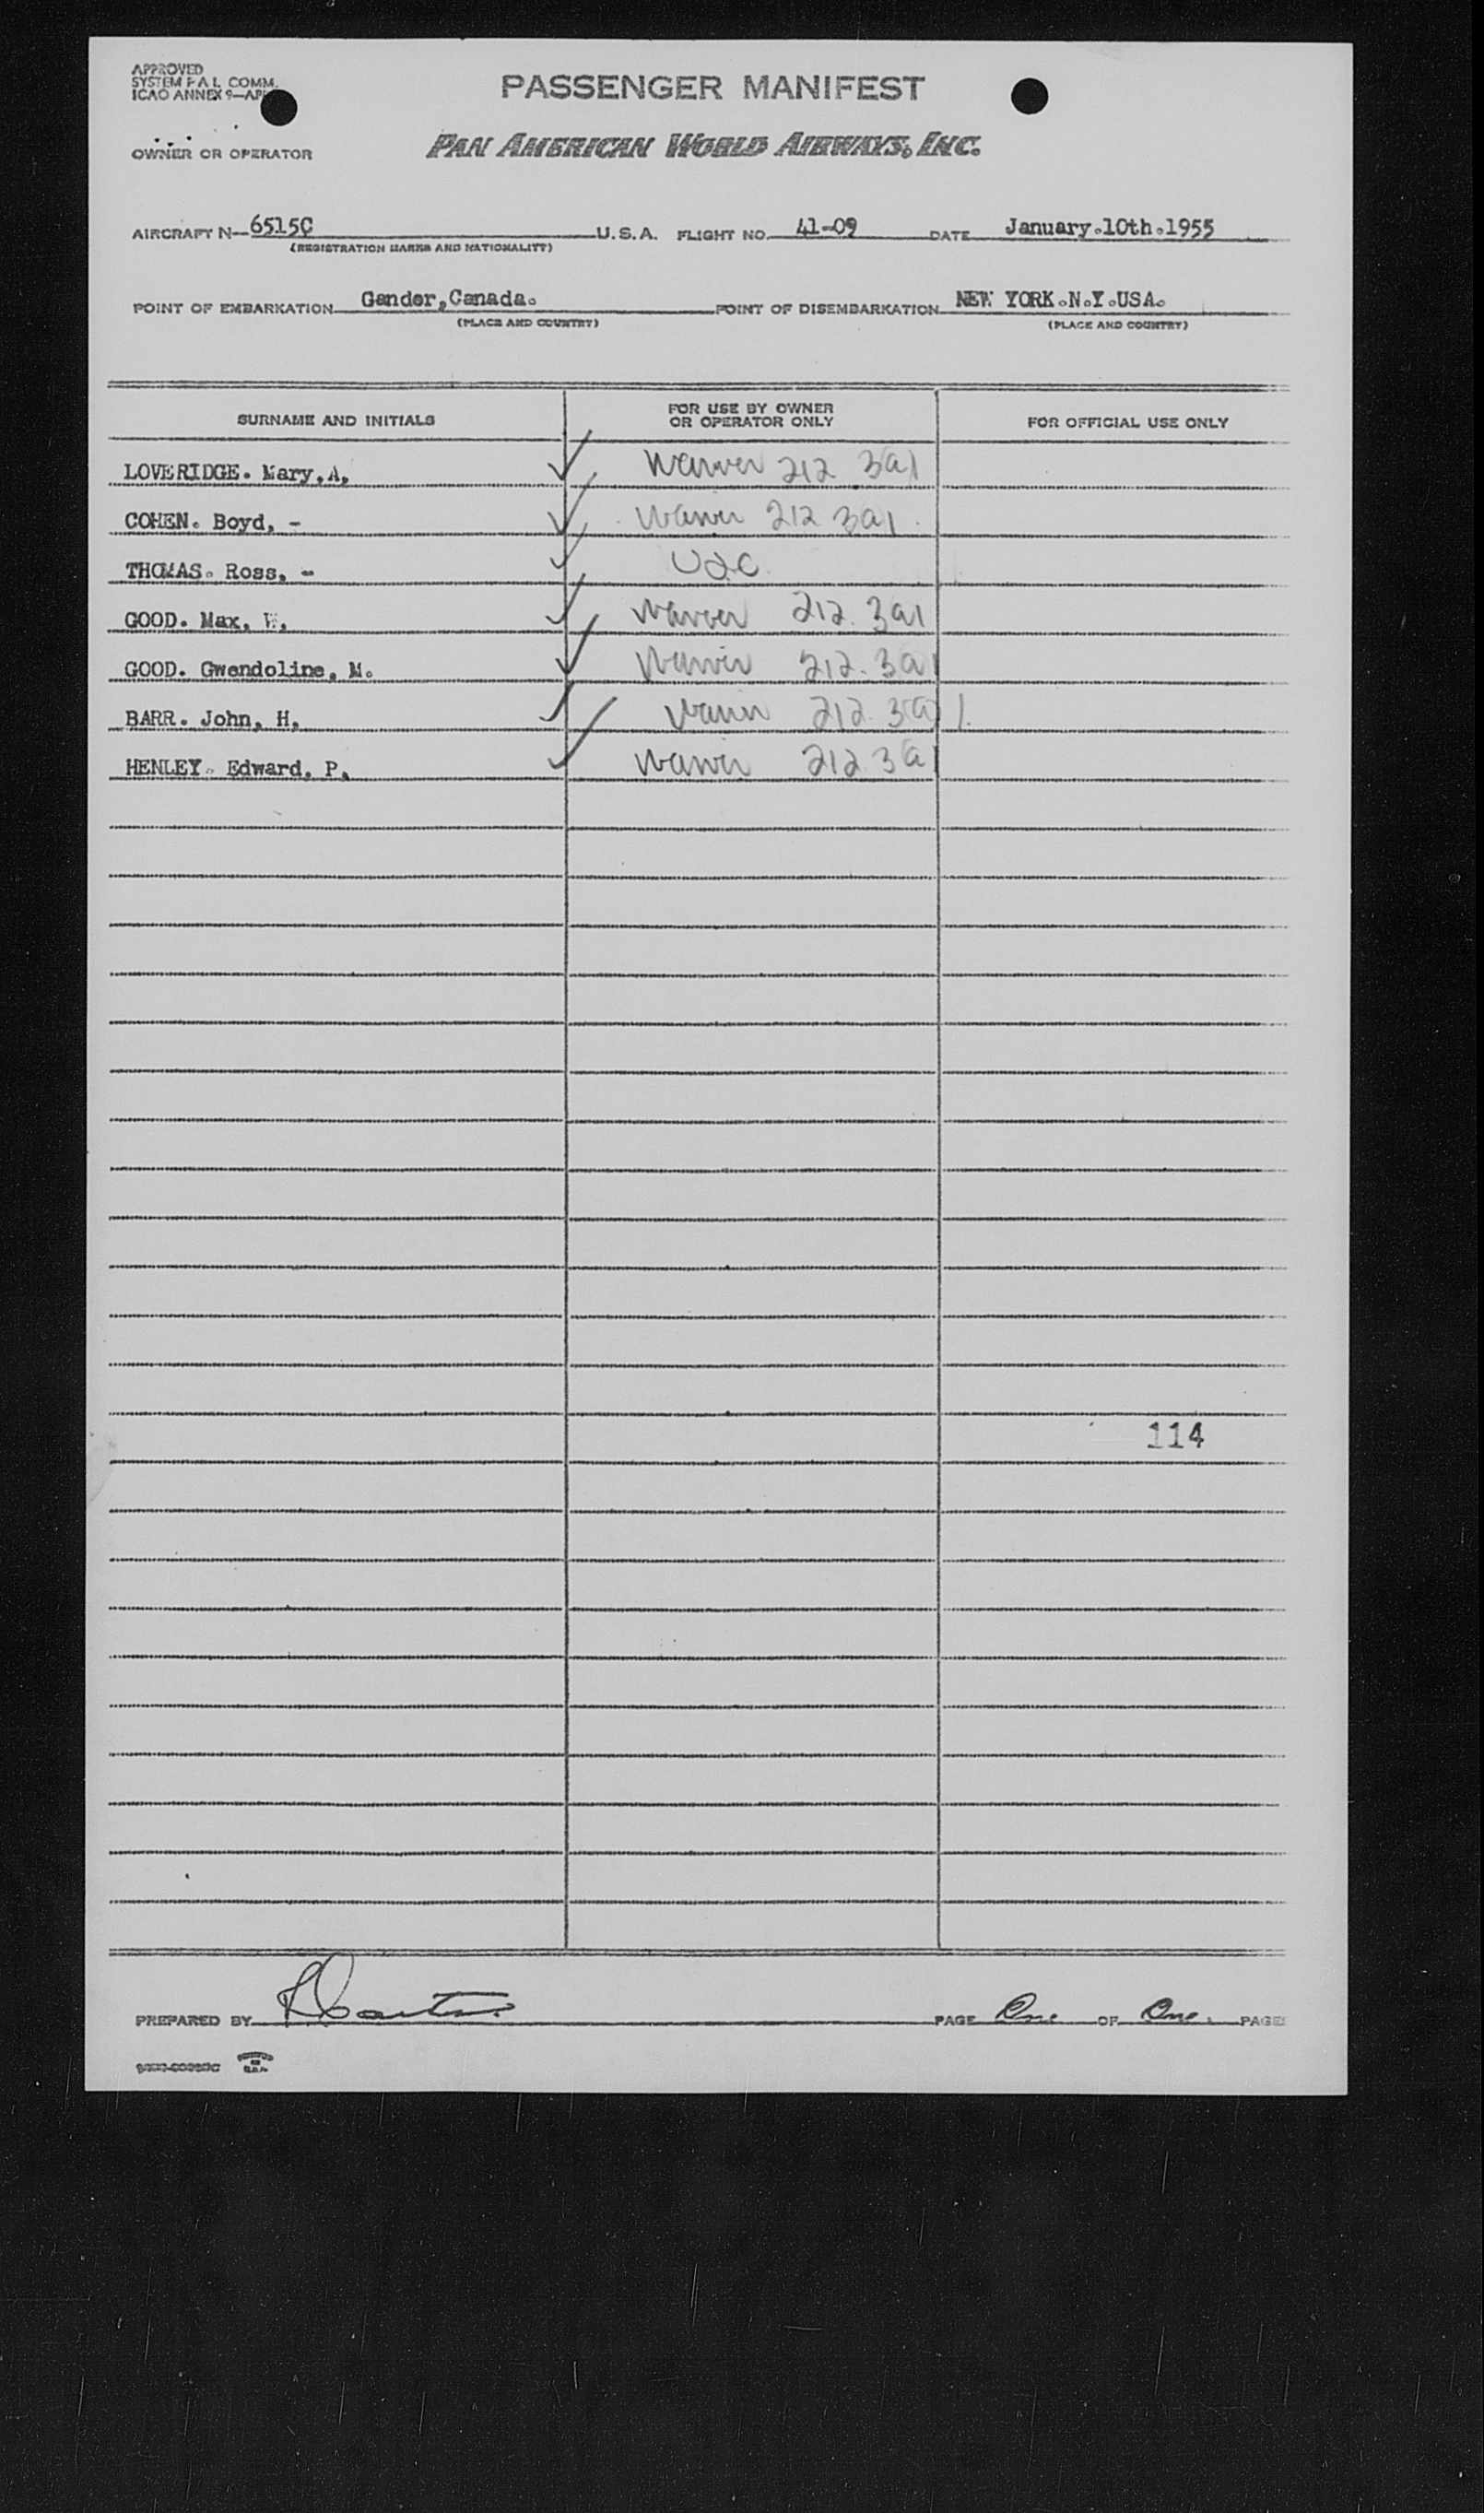 APPROVED
SYSTEM P.A.I. COMM.
ICAO ANNEX 9—AP
PASSENGER MANIFEST
OWNER OR OPERATOR
PAN AMERICAN WORLD AIRWAYS, INC.
AIRCRAFT N- 6515C U.S.A. FLIGHT NO. 41-09 DATE January.10th.1955
(REGISTRATION MARKS AND NATIONALITY)
POINT OF EMBARKATION Gander,Canada. POINT OF DISEMBARKATION NEW YORK.N.Y.USA.
(PLACE AND COUNTRY) (PLACE AND COUNTRY)
SURNAME AND INITIALS FOR USE BY OWNER OR OPERATOR ONLY FOR OFFICIAL USE ONLY
LOVERIDGE. Mary,A, Waiver 212 3a1
COHEN. Boyd, - Waiver 212 3a1
THOMAS. Ross, - USC
GOOD. Max, W, Waiver 212.3a1
GOOD. Gwendoline, M. Waiver 212.3a1
BARR. John, H, Waiver 212.3a1
HENLEY. Edward, P, Waiver 212.3a1
114
PREPARED BY PAGE One OF One. PAGES
PRINTED IN U.S.A.